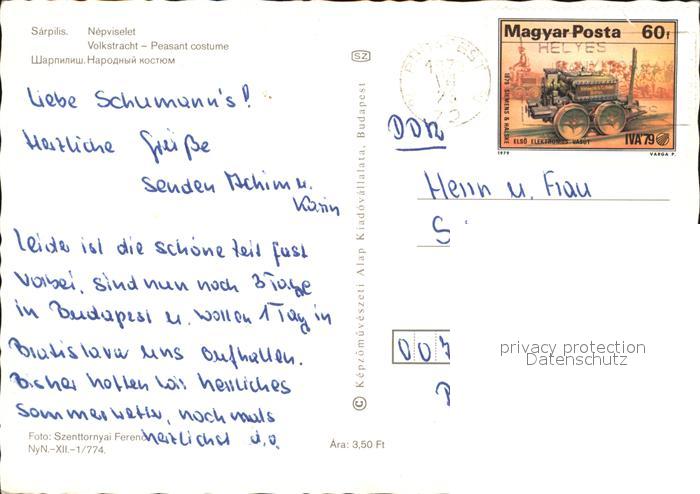 Sárpilis. Népviselet
Volkstracht – Peasant costume
Шарпилиш. Народный костюм
SZ
Magyar Posta 60f
HELYES
1879 SIEMENS & HALSKE
ELSŐ ELEKTROMOS VASÚT
IVA'79
1979
VARGA P.
Liebe Schumann's!
Herzliche Grüße
senden Achim u.
Karin
Leider ist die schöne Zeit fast
vorbei, sind nun noch 3 Tage
in Budapest u. wollen 1 Tag in
Bratislava uns aufhalten.
Bisher hatten wir herrliches
Sommerwetter, nochmals
herzlichst d.o.
Foto: Szenttornyai Ferenc
NyN.–XII.–1/774.
Ára: 3,50 Ft
© Képzőművészeti Alap Kiadóvállalata, Budapest
DDR
Herrn u. Frau
S
007
privacy protection
Datenschutz